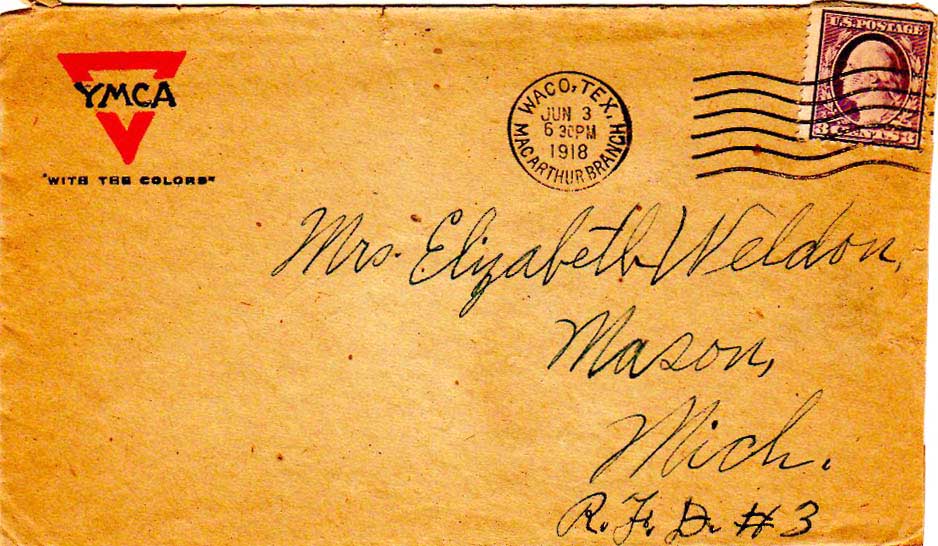 YMCA
"WITH THE COLORS"
WACO, TEX.
JUN 3
6 30PM
1918
MACARTHUR BRANCH
U.S. POSTAGE
3 CENTS 3
Mrs. Elizabeth Weldon,
Mason,
Mich.
R. F. D. # 3